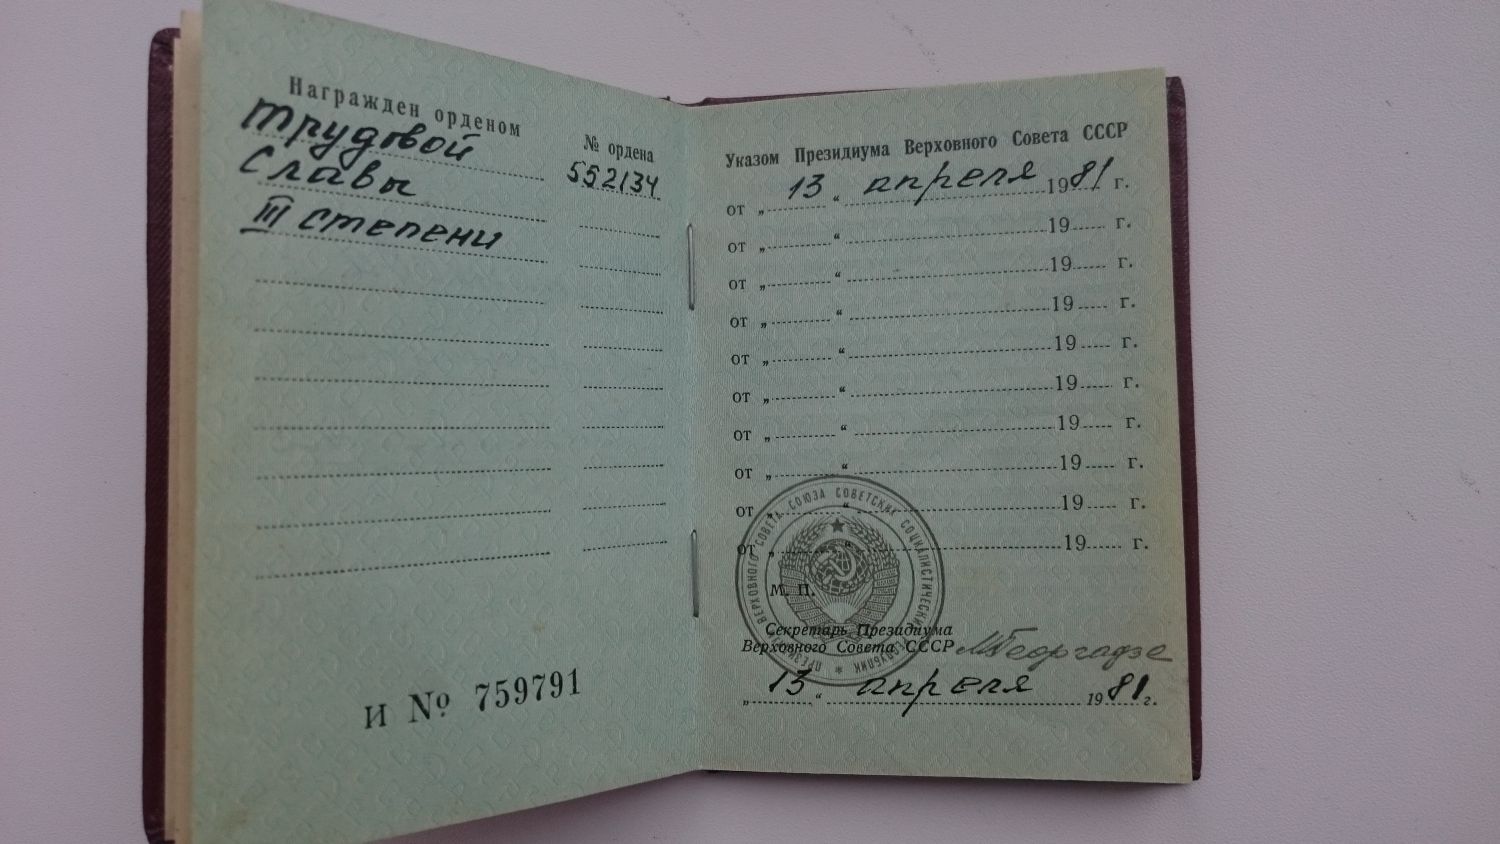 Награжден орденом
№ ордена
Трудовой
552134
Славы
III степени
И № 759791
Указом Президиума Верховного Совета СССР
от „ 13 “ апреля 1981 г.
от „ “ 19 г.
от „ “ 19 г.
от „ “ 19 г.
от „ “ 19 г.
от „ “ 19 г.
от „ “ 19 г.
от „ “ 19 г.
от „ “ 19 г.
от „ “ 19 г.
ПРЕЗИДИУМ ВЕРХОВНОГО СОВЕТА СОЮЗА СОВЕТСКИХ СОЦИАЛИСТИЧЕСКИХ РЕСПУБЛИК
М. П.
Секретарь Президиума
Верховного Совета СССР М Георгадзе
„ 13 “ апреля 1981 г.